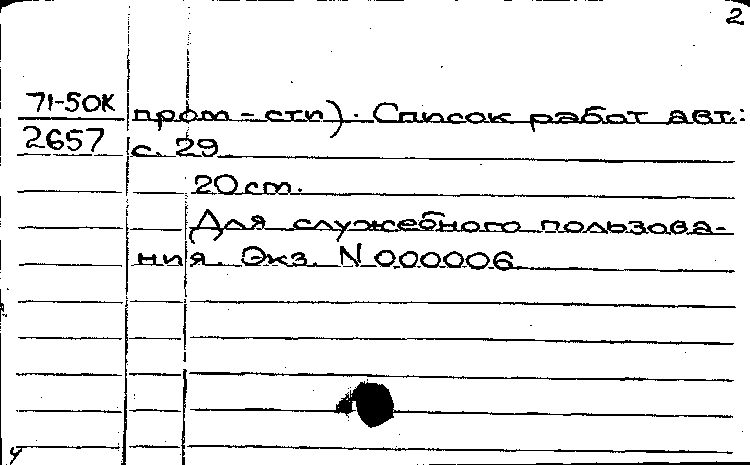 2
71-50К пром-сти). Список работ авт.:
2657 с. 29
20 см.
Для служебного пользова-
ния. Экз. N 000006